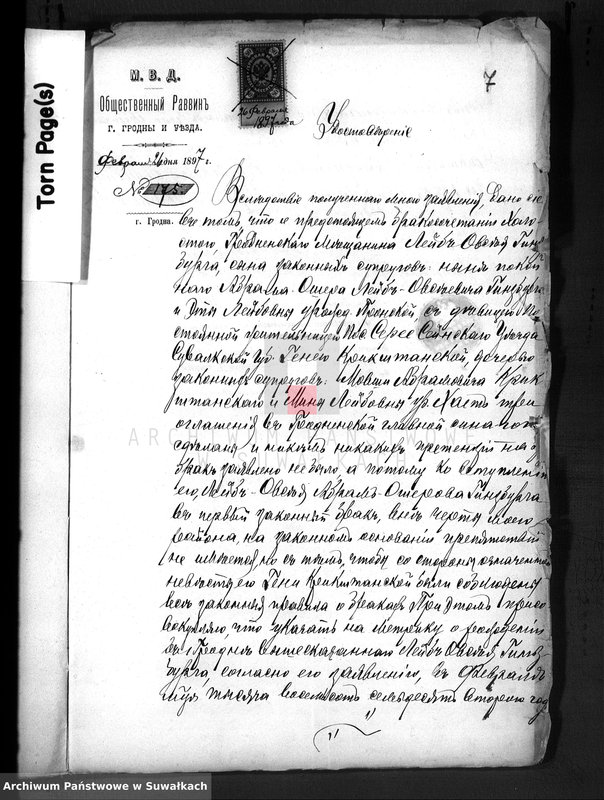 Torn Page(s)
М. В. Д.
Общественный Раввинъ
Г. ГРОДНЫ И УѢЗДА.
Февраля 26 дня 1897 г.
№ 175
г. Гродна.
26 Февраля
1897 года
7
Удостовѣреніе
Вслѣдствіе полученнаго мною заявленія, дано сіе
въ томъ, что о предстоящемъ бракосочетаніи холо
стого, Гродненскаго мѣщанина Лейбъ-Овсея Гинз
бурга, сына законныхъ супруговъ: нынѣ покой
наго Абрама-Ошера Лейбъ-Овсеевича Гинзбурга
и Лейбовны урожд. съ дѣвицей по
стоянной жительницей пос. Сереѐ Сейнскаго Уѣзда
Сувалкской губ. Геней Крикштанской, дочерью
законныхъ супруговъ: Мовши Абрамовича Крик
штанскаго и Лейбовны ур. три
оглашенія въ Гродненской главной синагогѣ
сдѣланы и никѣмъ никакихъ претензій на
бракъ заявлено не было а потому ко вступленію
его, Лейбъ-Овсея Абрамъ-Ошерова Гинзбурга
въ первый законный бракъ, внѣ черты моего
района, на законномъ основаніи препятствій
не имѣется но съ тѣмъ, чтобы со стороны означенной
невѣсты его Гени Крикштанской были соблюдены
всѣ законныя правила о бракахъ При этомъ присо
вокупляю, что указать на метрику о рожденіи
въ г. Гроднѣ вышесказаннаго Лейбъ Овсея Гинз
бурга, согласно его заявленію, въ Февралѣ
мѣся тысяча восемьсотъ семьдесятъ второго год
ARCHIWUM PAŃSTWOWE
W SUWAŁKACH
Archiwum Państwowe w Suwałkach